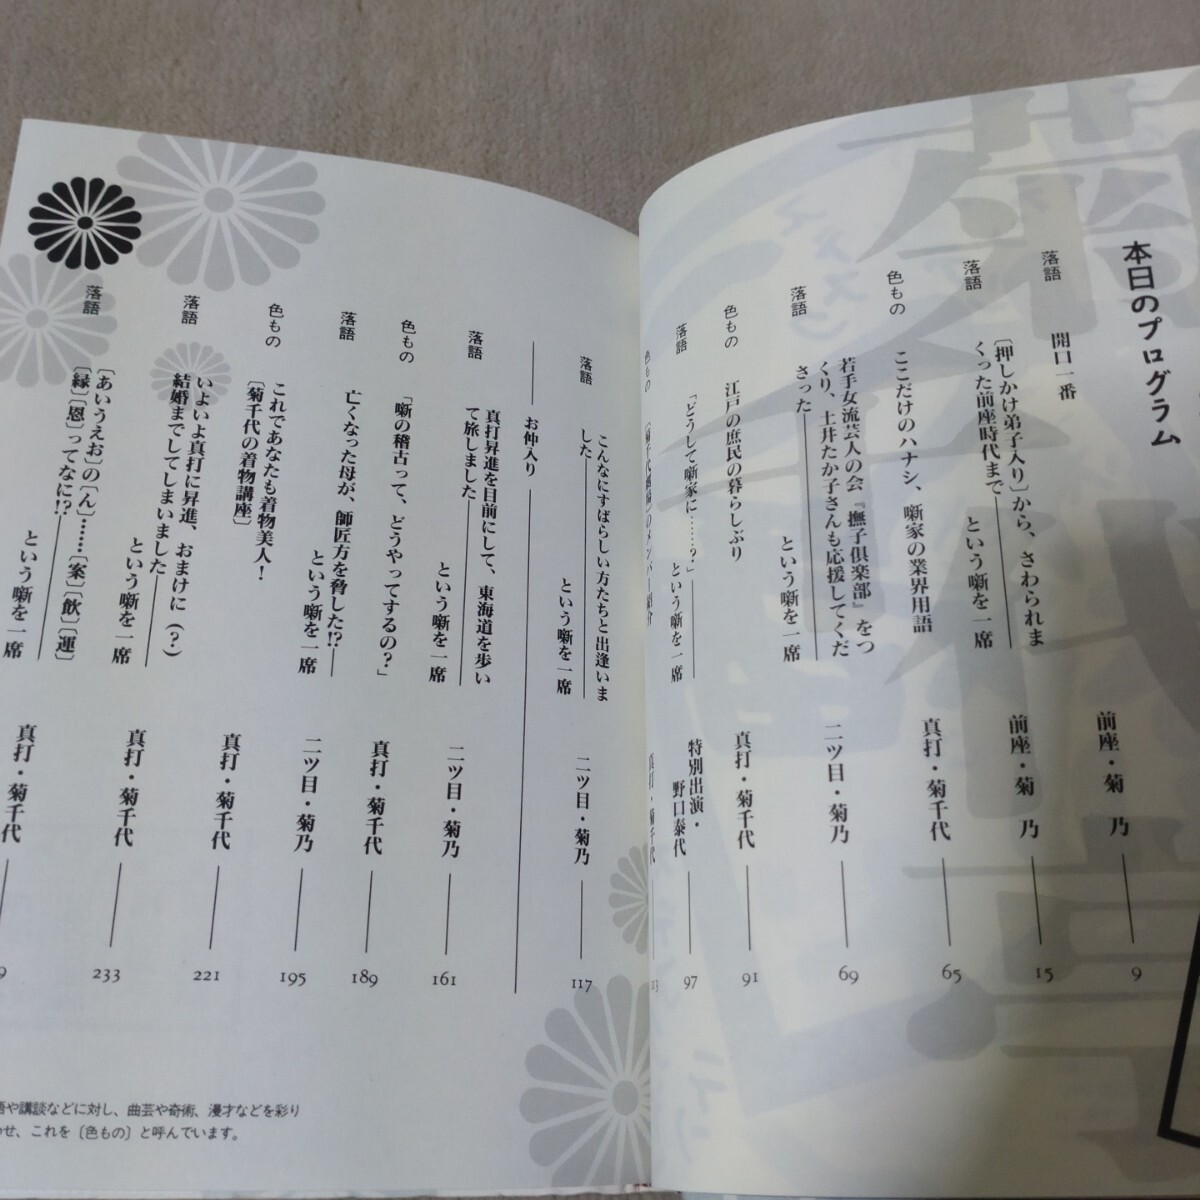 本日のプログラム
落語
開口一番
前座・菊 乃
9
落語
〔押しかけ弟子入り〕から、さわられま
くった前座時代まで
という噺を一席
前座・菊 乃
15
色もの
ここだけのハナシ、噺家の業界用語
真打・菊千代
65
落語
若手女流芸人の会『撫子倶楽部』をつ
くり、土井たか子さんも応援してくだ
さった
という噺を一席
二ツ目・菊乃
69
色もの
江戸の庶民の暮らしぶり
真打・菊千代
91
落語
「どうして噺家に……？」
という噺を一席
特別出演・
野口泰代
97
色もの
のメンバー紹介
真打・菊千代
113
落語
こんなにすばらしい方たちと出逢いま
した
という噺を一席
二ツ目・菊乃
117
お仲入り
落語
真打昇進を目前にして、東海道を歩い
て旅しました
という噺を一席
二ツ目・菊乃
161
色もの
「噺の稽古って、どうやってするの？」
真打・菊千代
189
落語
亡くなった母が、師匠方を脅した!?
という噺を一席
二ツ目・菊乃
195
色もの
これであなたも着物美人！
〔菊千代の着物講座〕
真打・菊千代
221
落語
いよいよ真打に昇進、おまけに（？）
結婚までしてしまいました
という噺を一席
真打・菊千代
233
落語
〔あいうえお〕の〔ん〕……〔案〕〔飲〕〔運〕
〔縁〕〔恩〕ってなに!?
という噺を一席
真打・菊千代
9
や講談などに対し、曲芸や奇術、漫才などを彩り
せ、これを〔色もの〕と呼んでいます。